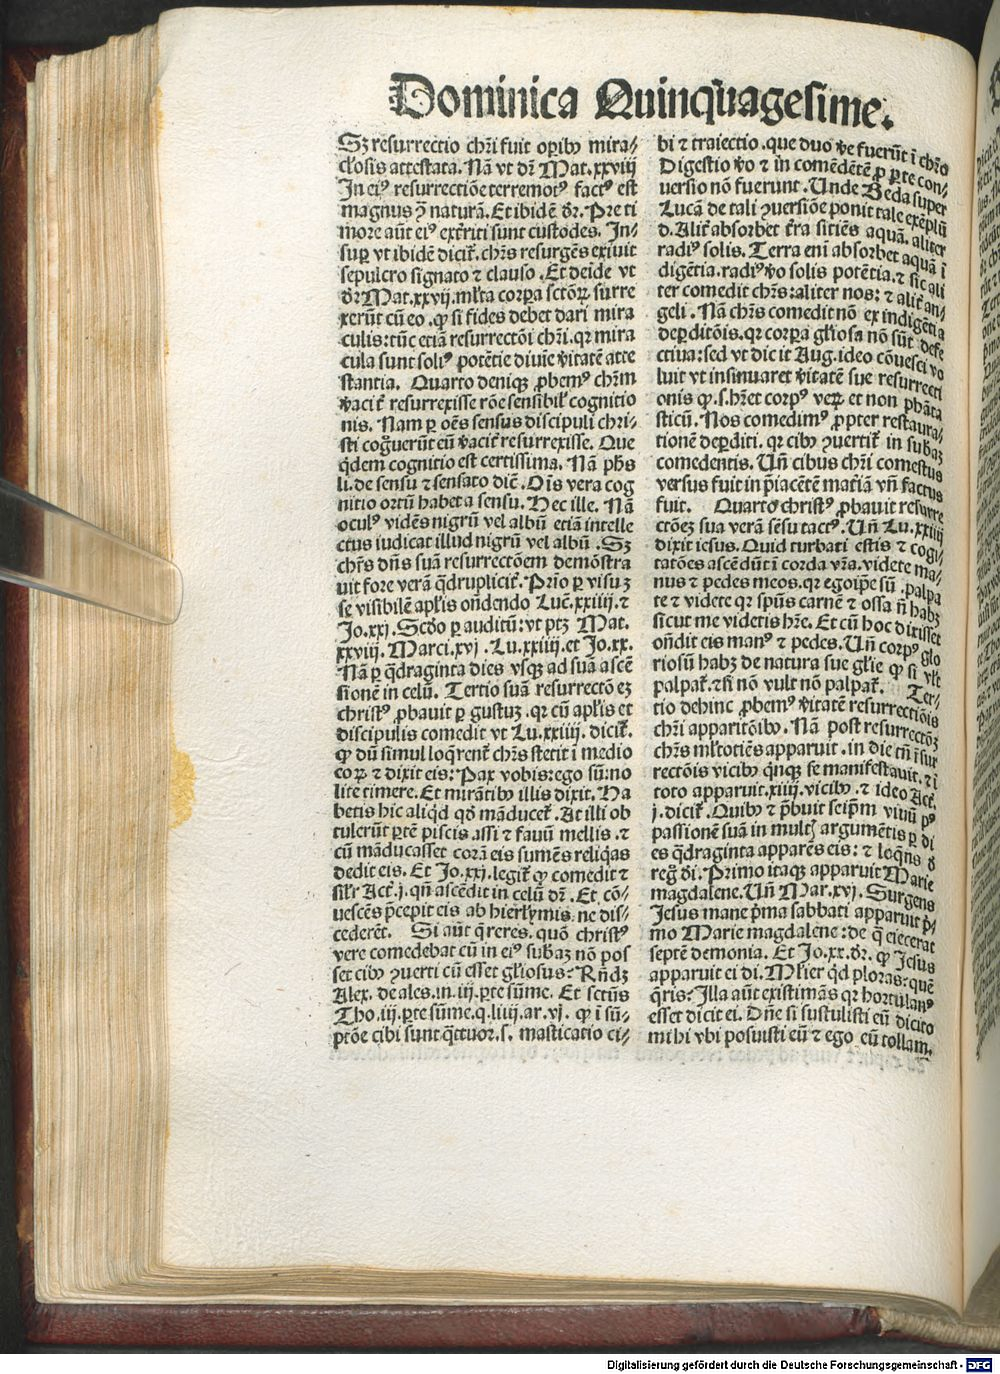 Dominica Quinquagesime.
Sꝫ resurrectio chr̄i fuit oꝑibꝰ mira-
cl̓osis attestata. Nā vt dr̄ Mat. xxviij
In eiꝰ resurrectiōe terremotꝰ factꝰ est
magnus ꝯ̄ naturā. Et ibidē dr̄. Pre ti
more aūt eiꝰ exťriti sunt custodes. In-
suꝑ vt ibidē dicit̄. chr̄s resurgēs exiuit
sepulcro signato ⁊ clauso. Et deīde vt
dr̄ Mat. xxvij. ml̓ta corꝑa sctōꝝ surre
xerūt cū eo. ꝙ si fides debet dari mira
culis: tūc etiā resurrectōi chr̄i. qꝛ mira
cula sunt soliꝰ potētie diuīe v̓itatē atte
stantia. Quarto deniqꝫ ꝓbemꝰ chr̄m
v̓acit̓ resurrexisse rōe sensibil̓ cognitio
nis. Nam ꝑ oēs sensus discipuli chri-
sti cog̓uerūt eū v̓acit̓ resurrexisse. Que
q̄dem cognitio est certissima. Nā ph̓s
li. de sensu ⁊ sensato diē. Oīs vera cog
nitio ortū habet a sensu. Hec ille. Nā
oculꝰ vidēs nigrū vel albū etiā intelle
ctus iudicat illud nigrū vel albū. Sꝫ
chr̄s dn̄s suā resurrectōem demōstra
uit fore verā q̄druplicit̓. Prīo ꝑ visuꝫ
se visibilē apl̓is on̄dendo Luc̄. xxiiij. ⁊
Jo. xxj. Scd̓o ꝑ auditū: vt ptꝫ Mat.
xxviij. Marci. xvj. Lu. xxiiij. et Jo. xx.
Nā ꝑ q̄draginta dies vsqꝫ ad suā ascē
sionē in celū. Tertio suā resurrectō eꝫ
christꝰ ꝓbauit ꝑ gustuꝫ. qꝛ cū apl̓is et
discipulis comedit vt Lu. xxiiij. dicit̄.
ꝙ dū simul loq̄rent̄ chr̄s stetit ī medio
eoꝝ ⁊ dixit eis: Pax vobis: ego sū: no
lite timere. Et mirātibꝰ illis dixit. Ha
betis hic aliq̄d qd̓ māducet̄. At illi ob
tulerūt ꝑtē piscis assi ⁊ fauū mellis. ⁊
cū māducasset corā eis sumēs reliq̄as
dedit eis. Et Jo. xxj. legit̄ ꝙ comedit ⁊
sil̓r Act̄. j. qn̄ ascēdit in celū dr̄. Et cō-
uescēs p̄cepit eis ab hierl̓ymis ne dis-
cederēt. Si aūt q̄reres. quō christꝰ
vere comedebat cū in eiꝰ sub̓aꝫ nō pos
set cibꝰ ꝯuerti cū esset gl̓iosus: Rn̄dꝫ
Alex. de ales. in. iij. ꝑte sūme. Et sctūs
Tho. iij. ꝑte sūme. q. liiij. ar. vj. ꝙ ī sū-
ptōe cibi sunt q̄ttuor. s. masticatio ci-
bi ⁊ traiectio. que duo v̓e fuerūt ī chr̄o
Digestio v̓o ⁊ in comēdētē ꝓ ꝑte con-
uersio nō fuerunt. Unde Beda super
Lucā de tali ꝯuersiōe ponit tale exēplū
d. Alit̓ absorbet t̓ra sitiēs aquā. aliter
radiꝰ solis. Terra eni absorbet aquā ī
digētia. radiꝰ v̓o solis potētia. ⁊ sic ali
ter comedit chr̄s: aliter nos: ⁊ alit̓ an-
geli. Nā chr̄s comedit nō ex indigētia
deꝑditōis. qꝛ corꝑa gl̓iosa nō sūt defe
ctiua: sed vt dicit Aug. ideo cōuesci vo
luit vt insinuaret v̓itatē sue resurrecti
onis ꝙ. s. hr̄et corpꝰ veꝝ et non phāta
sticū. Nos comedimꝰ ꝓpter restaura-
tionē deꝑditi. qꝛ cibꝰ ꝯuertit̄ in sub̓aꝫ
comedentis. Un̄ cibus chr̄i comestus
versus fuit in p̄iacētē mat̓iā vn̄ factus
fuit. Quarto christꝰ ꝓbauit resurre
ctōeꝫ sua verā sēsu tactꝰ. Un̄ Lu. xxiiij
dixit iesus. Quid turbati estis ⁊ cogi
tatōes ascēdūt ī corda vr̄a. videte ma-
nus ⁊ pedes meos. qꝛ ego ip̄e sū. palpa
te ⁊ videte qꝛ sp̄us carnē ⁊ ossa n̄ habꝫ
sicut me videtis hr̄e. Et cū hoc dixisset
on̄dit eis manꝰ ⁊ pedes. Un̄ corpꝰ glo
riosū habꝫ de natura sue gl̓ie ꝙ si vl̓t
palpat̄. ⁊ si nō vult nō palpat̄. Ter-
tio dehinc ꝓbemꝰ v̓itatē resurrectiōis
chr̄i apparitōibꝰ. Nā post resurrectōꝫ
chr̄s ml̓totiēs apparuit. in die tn̄ ī sur
rectōis vicibꝰ qn̄qꝫ se manifestauit. ⁊ ī
toto apparuit. xiiij. vicibꝰ. ⁊ ideo Act̄.
j. dicit̄. Quibꝰ ⁊ p̄buit seip̄m viuū pꝰ
passionē suā in mult̓ argumētis ꝑ di
es q̄draginta apparēs eis: ⁊ loq̄ns d̓
reg̓ di. Primo itaqꝫ apparuit Marie
magdalene. Un̄ Mar. xvj. Surgens
Jesus mane p̄ma sabbati apparuit p̄-
mo Marie magdalene: de q̄ eiecerat
septē demonia. Et Jo. xx. dr̄. ꝙ Jesus
apparuit ei di. Ml̓ier q̄d ploras: quē
q̄ris: Illa aūt existimās qꝛ hortulanꝰ
esset dicit ei. Dn̄e si sustulisti eū dicito
mihi vbi posuisti eū ⁊ ego eū tollam.
Digitalisierung gefördert durch die Deutsche Forschungsgemeinschaft - DFG